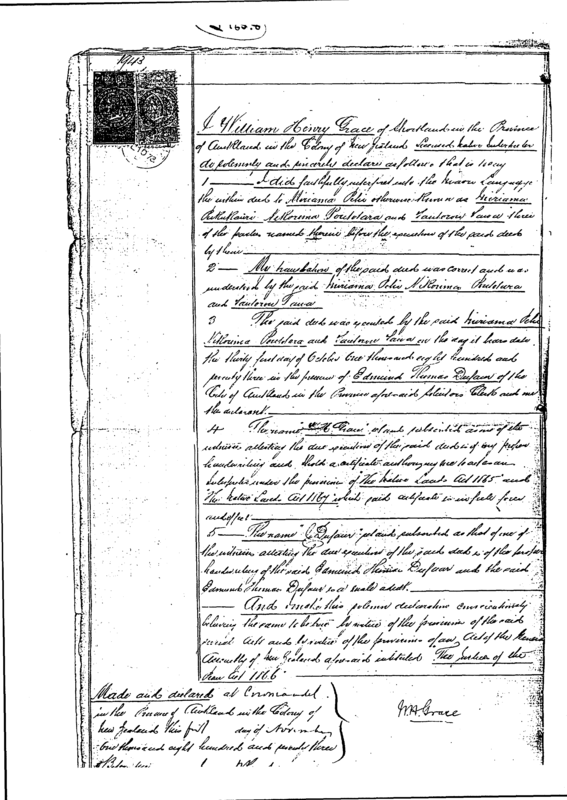 1943
I William Henry Grace of Shortland in the Province
of Auckland in the Colony of New Zealand Licensed Native Interpreter
do solemnly and sincerely declare as follows that is to say
1 — I did faithfully interpret into the Maori Language
the within deed to Miriama otherwise known as Miriama
and three
of the parties named therein before the execution of the said deed
by them
2 — My translation of the said deed was correct and was
understood by the said Miriama
and
3 The said deed was executed by the said Miriama
and on the day it bears date
the thirty first day of October One thousand eight hundred and
seventy three in the presence of Edmund Thomas Dufaur of the
City of Auckland in the Province aforesaid Solicitors Clerk and me
the declarant
4 The name "W H Grace" set and subscribed as one of the
witnesses attesting the due execution of the said deed is of my proper
handwriting and I hold a certificate authorizing me to act as an
Interpreter under the provisions of The Native Lands Act 1865 and
The Native Lands Act 1867 which said certificate is in full force
and effect
5 — The name "E Dufaur" set and subscribed as that of one of
the witnesses attesting the due execution of the said deed is of the proper
handwriting of the said Edmund Thomas Dufaur and the said
Edmund Thomas Dufaur is a male adult.
— And I make this solemn declaration conscientiously
believing the same to be true by virtue of the provisions of the said
Acts and by virtue of the provisions of an Act of the General
Assembly of New Zealand aforesaid intituled "The Justices of the
Peace Act 1866"
Made and declared at Coromandel
in the Province of Auckland in the Colony of
New Zealand this first day of November
One thousand eight hundred and seventy three
Before me
W H Grace